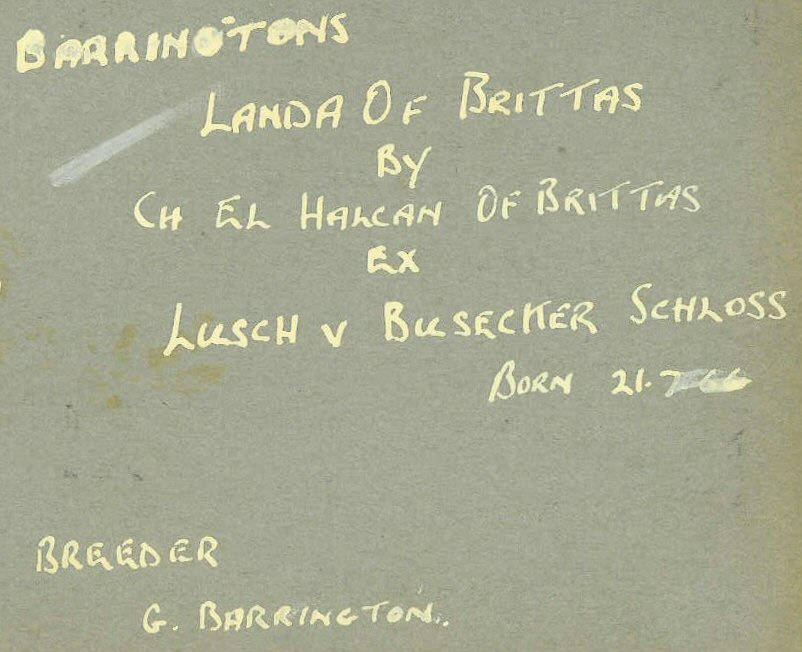 BARRINGTONS
LANDA OF BRITTAS
BY
CH EL HALCAN OF BRITTAS
EX
LUSCH V BUSECKER SCHLOSS
BORN 21.7
BREEDER
G. BARRINGTON.